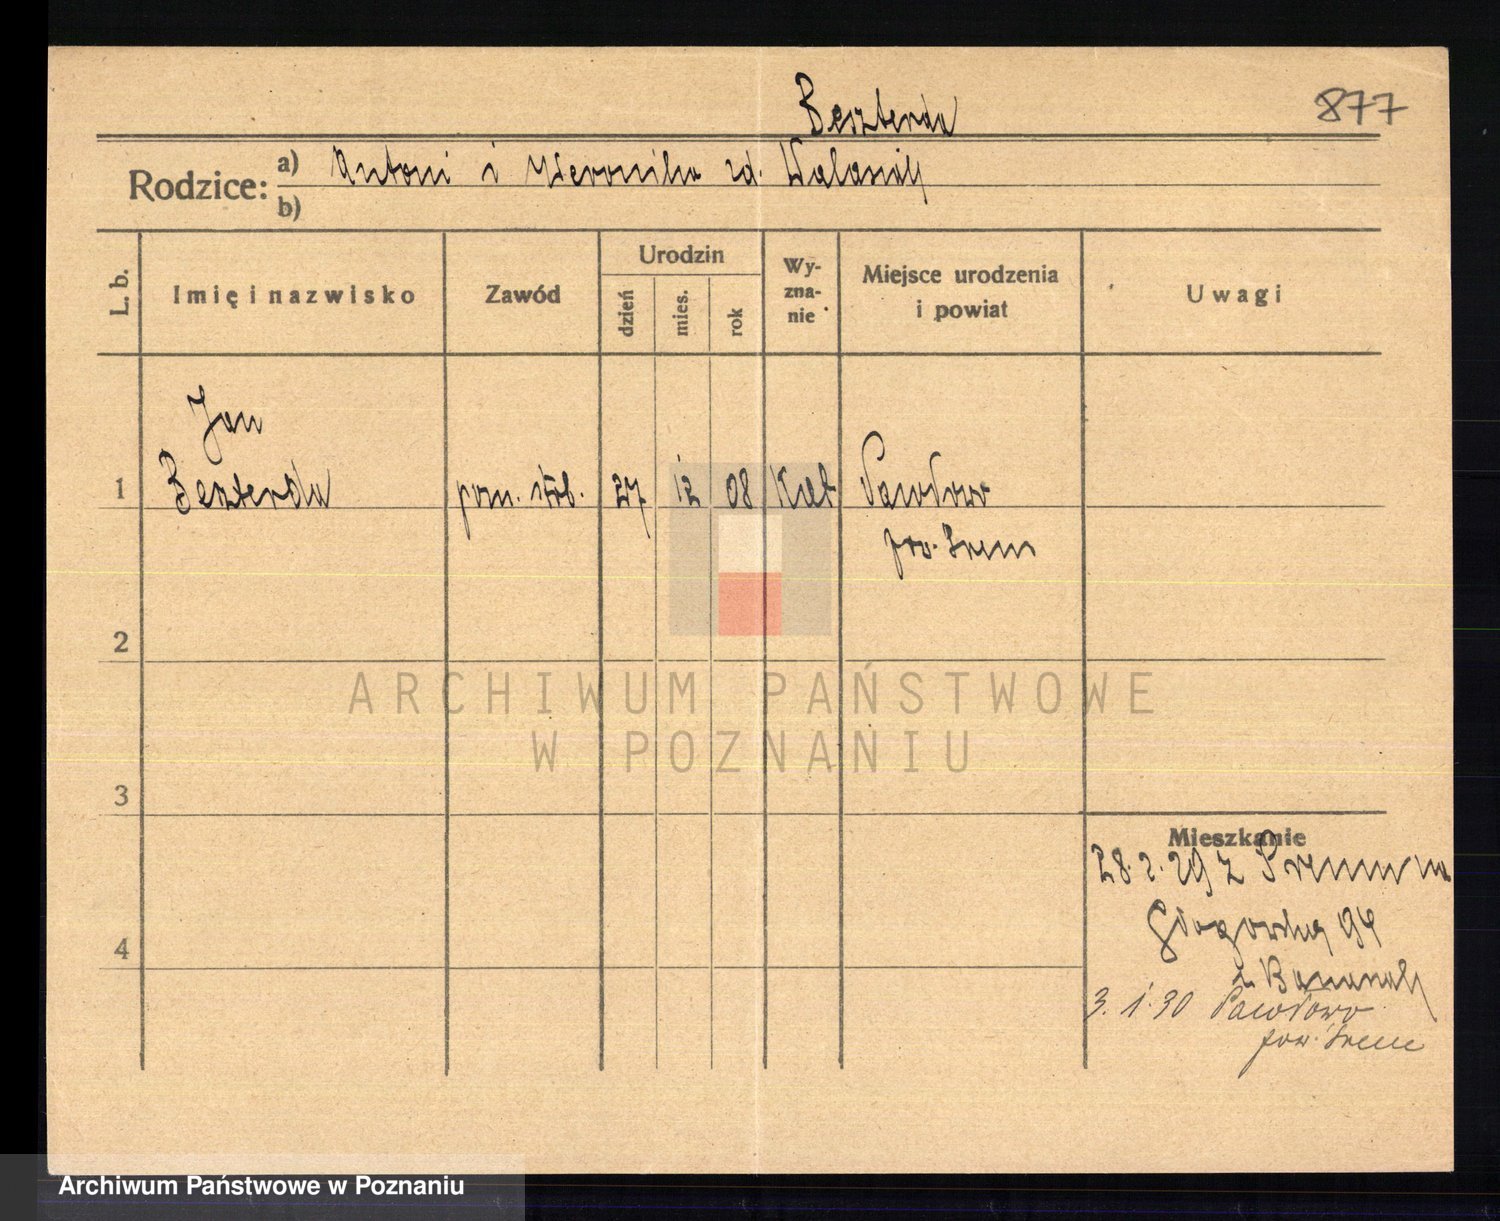 Beszterda
877
Rodzice:
a) Antoni i Weronika zd. Walasiak
b)
L. b.
Imię i nazwisko
Zawód
Urodzin
dzień
mies.
rok
Wy-
zna-
nie
Miejsce urodzenia
i powiat
Uwagi
Jan
1 Beszterda pom. 27 12 08 Kat
pow. Śrem
2
3
4
Mieszkanie
28. 2. 29 z
Głogowska 94
3. 1. 30
pow. Śrem
ARCHIWUM PAŃSTWOWE
W POZNANIU
Archiwum Państwowe w Poznaniu